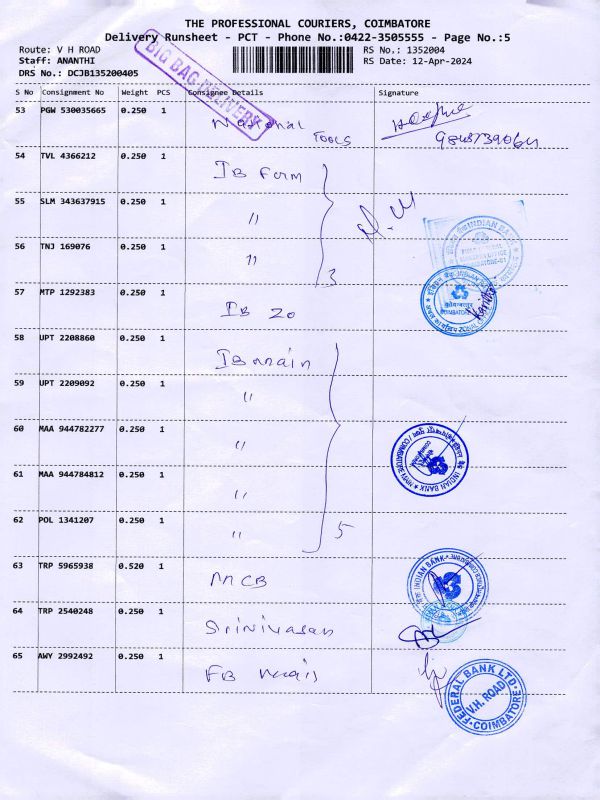 THE PROFESSIONAL COURIERS, COIMBATORE
Delivery Runsheet - PCT - Phone No.:0422-3505555 - Page No.:5
Route: V H ROAD RS No.: 1352004
Staff: ANANTHI RS Date: 12-Apr-2024
DRS No.: DCJB135200405
BIG BAG DELIVERY
S No Consignment No Weight PCS Consignee Details Signature
53 PGW 530035665 0.250 1 National Tools
54 TVL 4366212 0.250 1 IB Form
55 SLM 343637915 0.250 1 〃
56 TNJ 169076 0.250 1 〃 3
57 MTP 1292383 0.250 1 IB ZO
58 UPT 2208860 0.250 1 IB main
59 UPT 2209092 0.250 1 〃
60 MAA 944782277 0.250 1 〃
61 MAA 944784812 0.250 1 〃
62 POL 1341207 0.250 1 〃 5
63 TRP 5965938 0.520 1 MCB
64 TRP 2540248 0.250 1 Srinivasan
65 AWY 2992492 0.250 1 FB main
INDIAN BANK
INDIAN BANK
INDIAN BANK
FEDERAL BANK LTD
V.H. ROAD
COIMBATORE